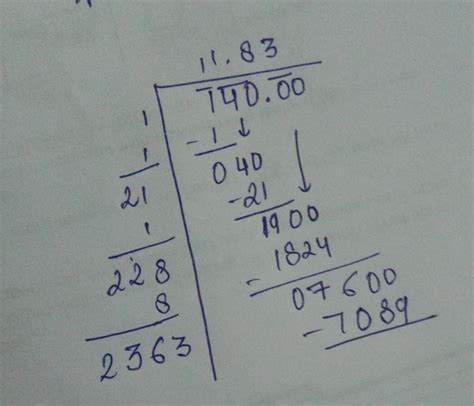 11.83
1 140.00
-1
1 040
21 -21
1 1900
228 -1824
8 07600
2363 -7089